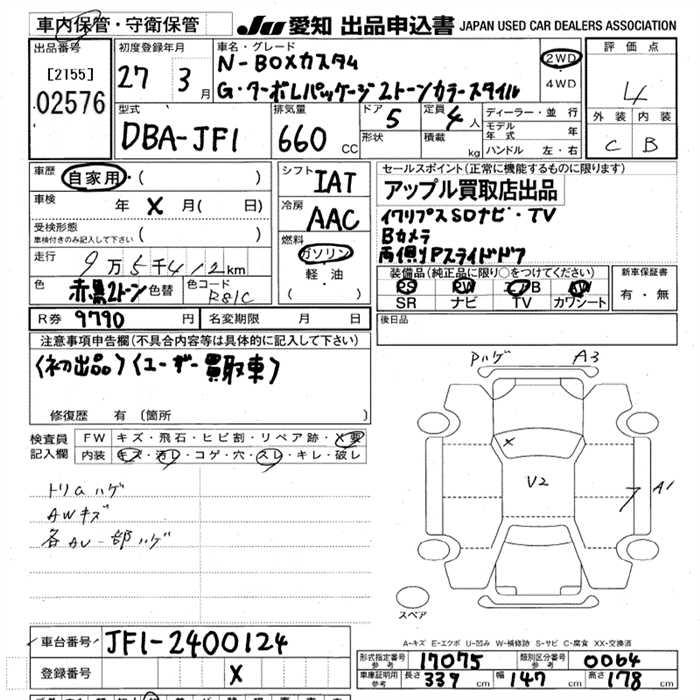 車内保管・守衛保管
JU 愛知 出品申込書 JAPAN USED CAR DEALERS ASSOCIATION
出品番号
[2155]
02576
初度登録年月
27 3月
車名・グレード
N-BOXカスタム
G・ターボLパッケージ 2トーンカラースタイル
2WD
4WD
評価点
4
外装 内装
C B
型式
DBA-JF1
排気量
660 CC
ドア 5
形状
定員 4人
積載 kg
ディーラー・並行
モデル年式 年
ハンドル 左・右
車歴 自家用・( )
車検 年 X 月( 日)
受検形態
車検付きのみ記入して下さい ( )
走行 9万5千412km
色 赤黒2トン 色替 色コード R81C
シフト IAT
冷房 AAC
燃料 ガソリン
軽・油
( )
セールスポイント(正常に機能するものに限ります)
アップル買取店出品
イクリプスSDナビ・TV
Bカメラ
両側Pスライドドア
装備品(純正品に限り○をつけてください)
PS PW エアB AW
SR ナビ TV カワシート
新車保証書
有・無
R券 9790 円 名変期限 月 日
後日品
注意事項申告欄(不具合内容等は具体的に記入して下さい)
(初出品)(ユーザー買取車)
修復歴 有(箇所 )
検査員記入欄
FW キズ・飛石・ヒビ割・リペア跡・X要
内装 キズ・汚レ・コゲ・穴・スレ・キレ・破レ
AWキズ
Pハゲ A3
X
V2
A1
スペア
A-キズ E-エクボ U-凹み W-補修跡 S-サビ C-腐食 XX-交換済
車台番号 JF1-2400124
登録番号 X
形式指定番号 参考 17075 類別区分番号 参考 0064
車庫証明用 参考 長さ 339 cm 幅 147 cm 高さ 178 cm